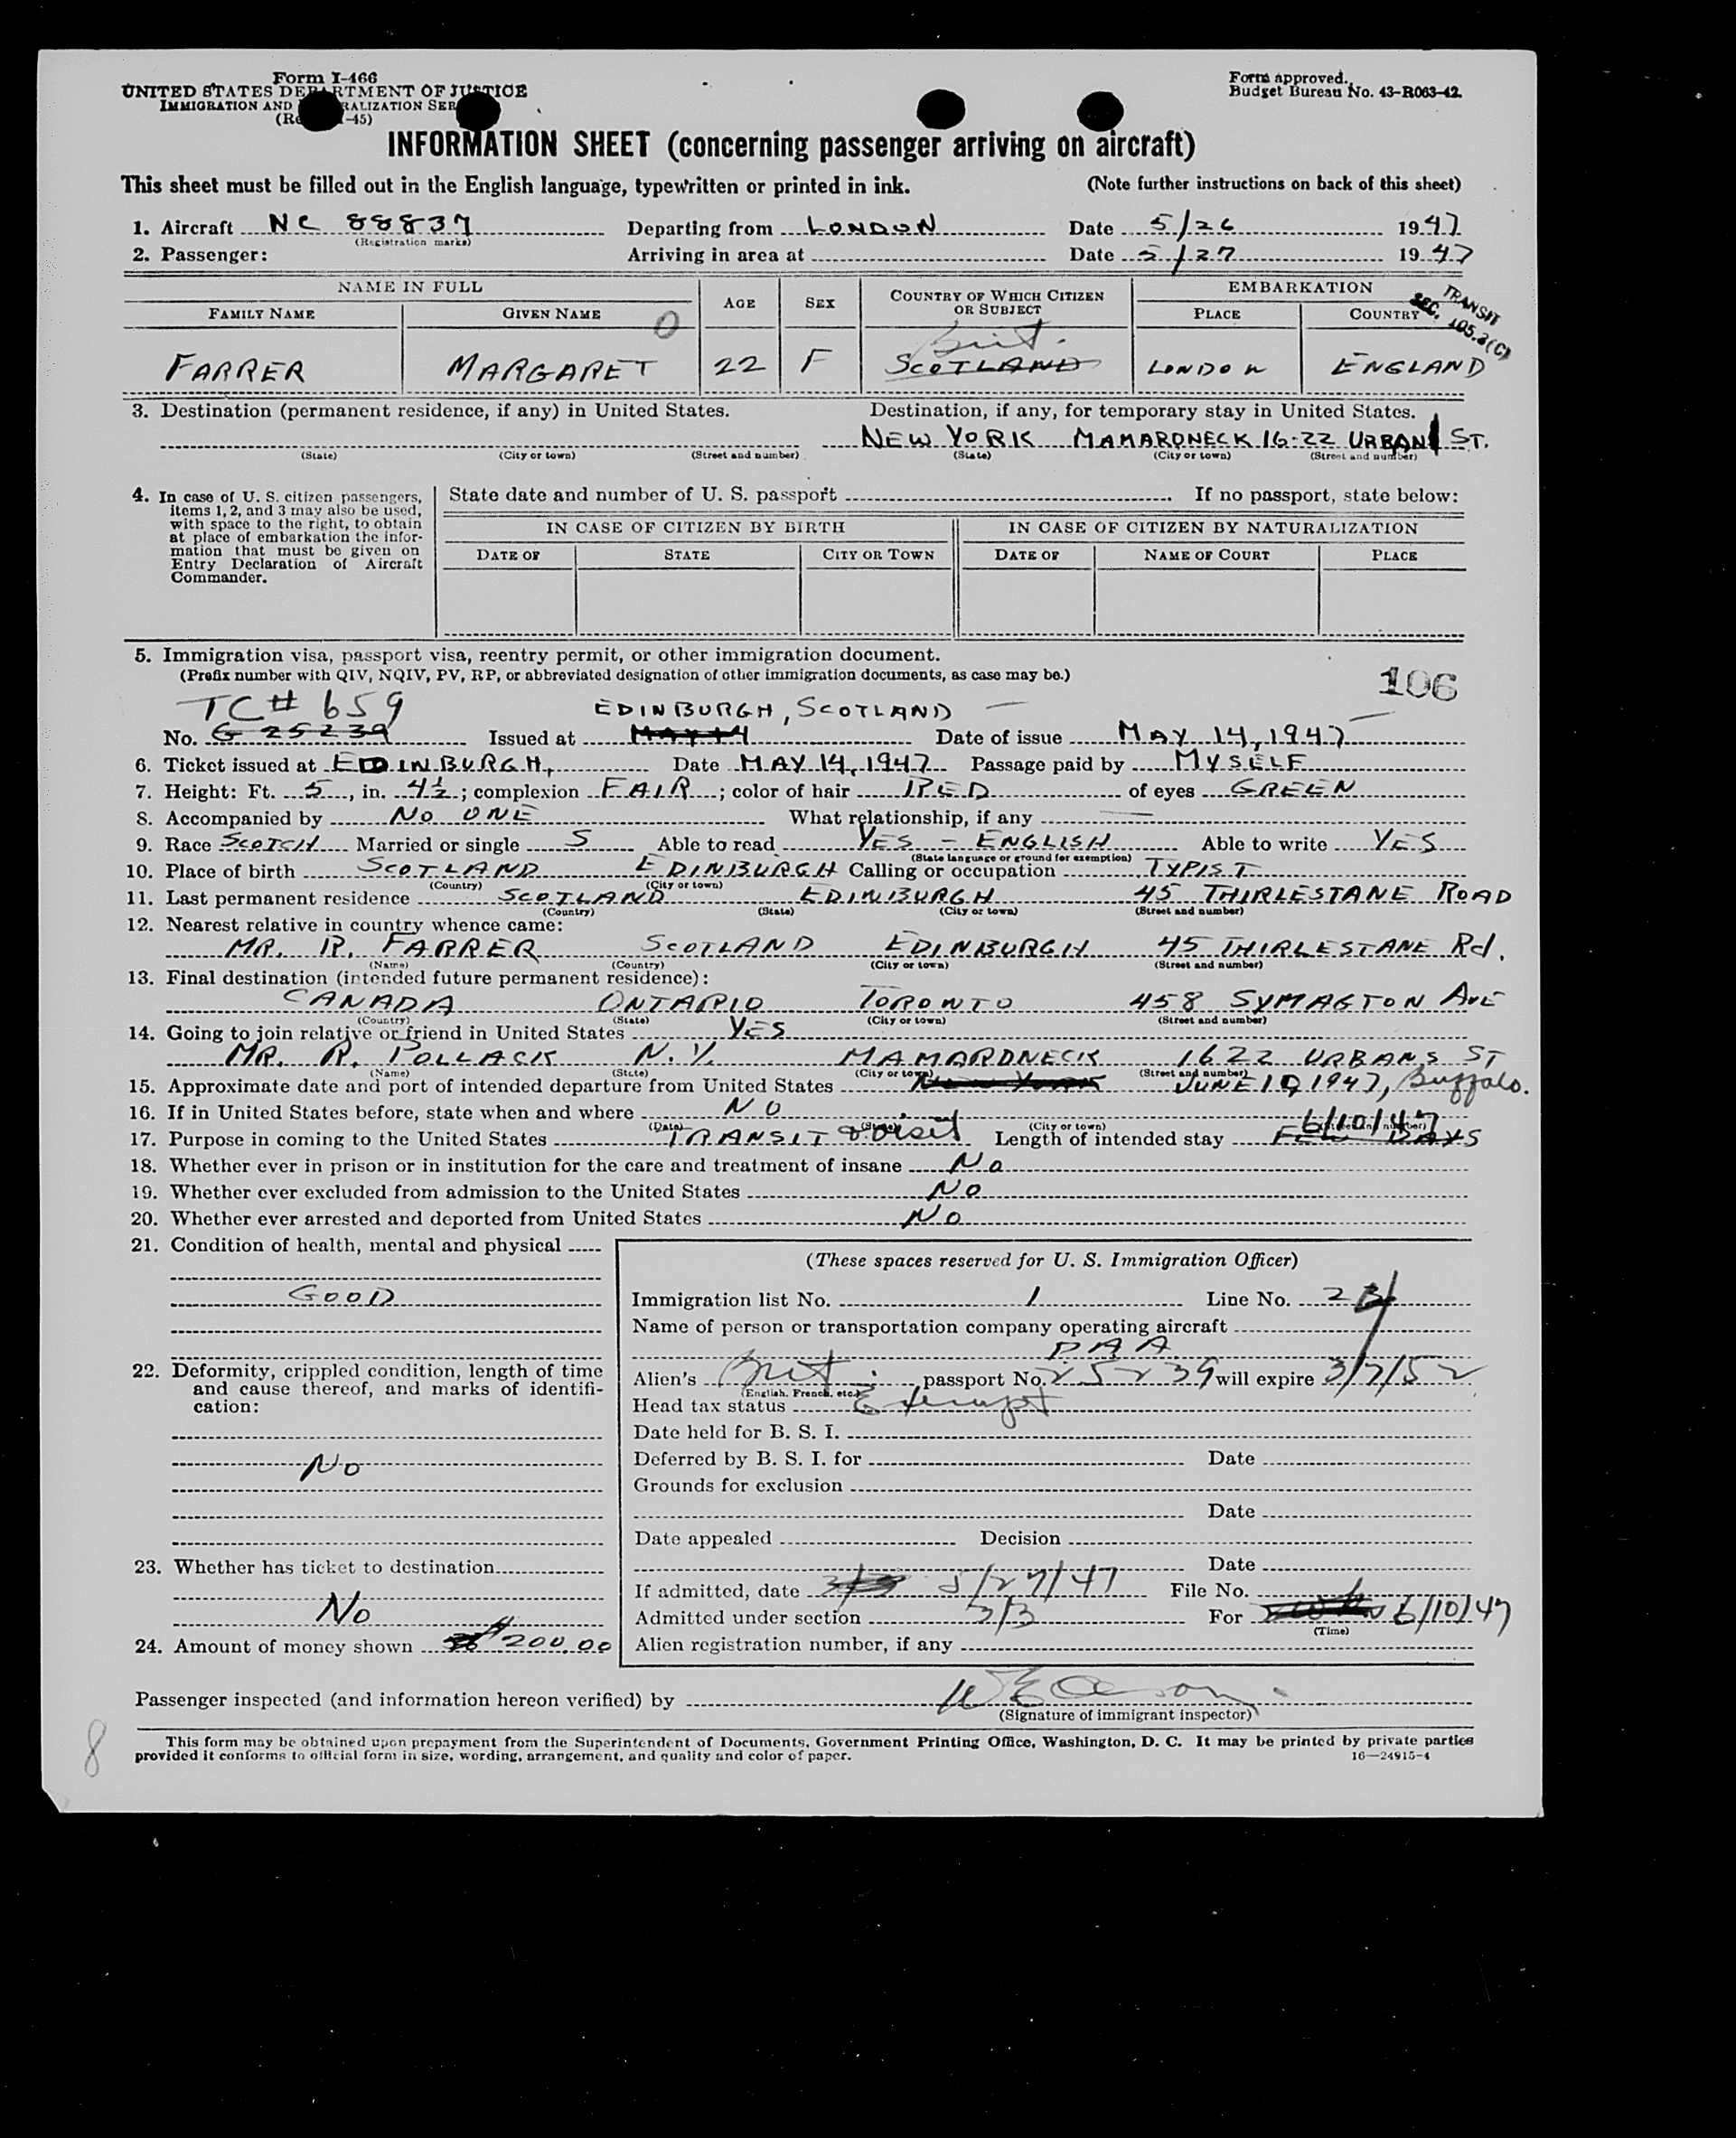 Form I-466
UNITED STATES DEPARTMENT OF JUSTICE
IMMIGRATION AND RALIZATION SER
(Re -45)
Form approved.
Budget Bureau No. 43-R063-42.
INFORMATION SHEET (concerning passenger arriving on aircraft)
This sheet must be filled out in the English language, typewritten or printed in ink. (Note further instructions on back of this sheet)
1. Aircraft NC 88837 Departing from LONDON Date 5/26 1947
(Registration marks)
2. Passenger: Arriving in area at Date 5/27 1947
NAME IN FULL AGE SEX COUNTRY OF WHICH CITIZEN OR SUBJECT EMBARKATION
FAMILY NAME GIVEN NAME PLACE COUNTRY
TRANSIT
SEC. 105.3(C)
O Brit.
FARRER MARGARET 22 F SCOTLAND LONDON ENGLAND
3. Destination (permanent residence, if any) in United States. Destination, if any, for temporary stay in United States.
NEW YORK MAMARONECK 16-22 URBAN ST.
(State) (City or town) (Street and number) (State) (City or town) (Street and number)
4. In case of U. S. citizen passengers, items 1, 2, and 3 may also be used, with space to the right, to obtain at place of embarkation the information that must be given on Entry Declaration of Aircraft Commander.
State date and number of U. S. passport If no passport, state below:
IN CASE OF CITIZEN BY BIRTH IN CASE OF CITIZEN BY NATURALIZATION
DATE OF STATE CITY OR TOWN DATE OF NAME OF COURT PLACE
5. Immigration visa, passport visa, reentry permit, or other immigration document.
(Prefix number with QIV, NQIV, PV, RP, or abbreviated designation of other immigration documents, as case may be.)
106
TC# 659 EDINBURGH, SCOTLAND
No. G 25239 Issued at MAY 14 Date of issue MAY 14, 1947
6. Ticket issued at EDINBURGH, Date MAY 14, 1947 Passage paid by MYSELF
7. Height: Ft. 5, in. 4½; complexion FAIR; color of hair RED of eyes GREEN
8. Accompanied by NO ONE What relationship, if any —
9. Race SCOTCH Married or single S Able to read YES - ENGLISH Able to write YES
(State language or ground for exemption)
10. Place of birth SCOTLAND EDINBURGH Calling or occupation TYPIST
(Country) (City or town)
11. Last permanent residence SCOTLAND EDINBURGH 45 THIRLESTANE ROAD
(Country) (State) (City or town) (Street and number)
12. Nearest relative in country whence came:
MR. R. FARRER SCOTLAND EDINBURGH 45 THIRLESTANE Rd.
(Name) (Country) (City or town) (Street and number)
13. Final destination (intended future permanent residence):
CANADA ONTARIO TORONTO 458 SYMAGTON AVE
(Country) (State) (City or town) (Street and number)
14. Going to join relative or friend in United States YES
MR. R. POLLACK N.Y. MAMARONECK 1622 URBANS ST
(Name) (State) (City or town) (Street and number)
15. Approximate date and port of intended departure from United States New York JUNE 10, 1947, Buffalo.
16. If in United States before, state when and where NO
(Date) (State) (City or town) (Street and number)
17. Purpose in coming to the United States TRANSIT & visit Length of intended stay FEW DAYS 6/10/47
18. Whether ever in prison or in institution for the care and treatment of insane No
19. Whether ever excluded from admission to the United States No
20. Whether ever arrested and deported from United States No
21. Condition of health, mental and physical
GOOD
22. Deformity, crippled condition, length of time and cause thereof, and marks of identification:
No
23. Whether has ticket to destination
No
24. Amount of money shown $200.00
(These spaces reserved for U. S. Immigration Officer)
Immigration list No. 1 Line No. 2
Name of person or transportation company operating aircraft
PAA
Alien's Brit. passport No. 25239 will expire 3/7/52
(English, French, etc.)
Head tax status Exempt
Date held for B. S. I.
Deferred by B. S. I. for Date
Grounds for exclusion
Date
Date appealed Decision
Date
If admitted, date 5/27/47 File No.
Admitted under section 3/3 For 6/10/47
(Time)
Alien registration number, if any
Passenger inspected (and information hereon verified) by
(Signature of immigrant inspector)
8
This form may be obtained upon prepayment from the Superintendent of Documents, Government Printing Office, Washington, D. C. It may be printed by private parties
provided it conforms to official form in size, wording, arrangement, and quality and color of paper. 16—24915-4